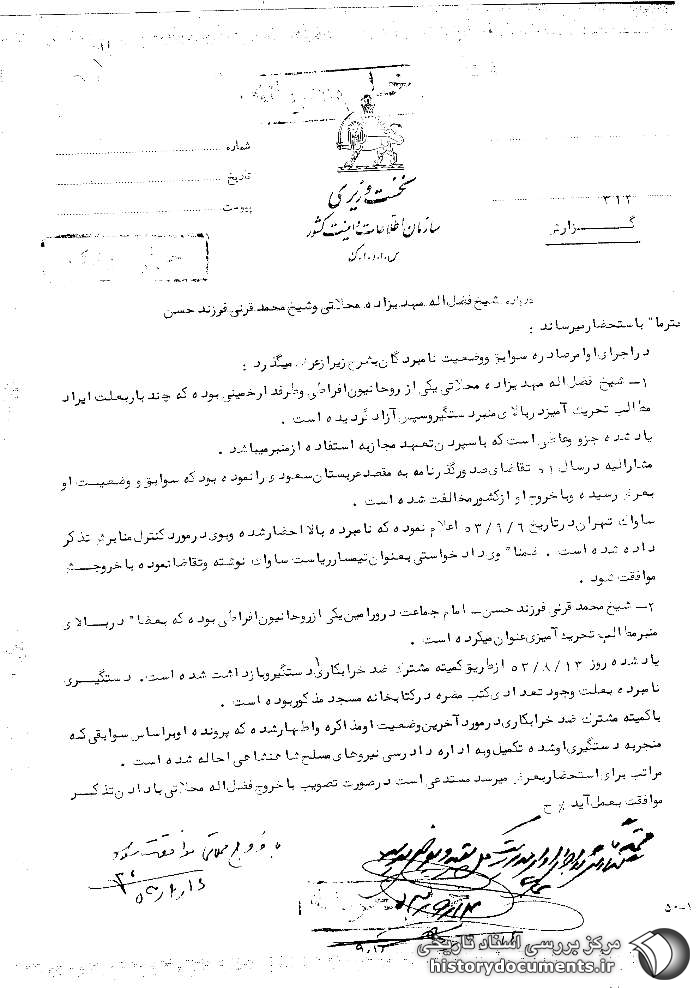 نخست وزیری
سازمان اطلاعات و امنیت کشور
س.ا.و.ا.ک
شماره
تاریخ
پیوست
۳۱۲
گزارش
درباره شیخ فضل اله مهدیزاده محلاتی وشیخ محمد قرنی فرزند حسن
محترما" باستحضار میرساند :
در اجرای اوامر صادره سوابق ووضعیت نامبردگان بشرح زیر از عرض میگذرد :
۱ــ شیخ فضل اله مهدیزاده محلاتی یکی از روحانیون افراطی وطرفدار خمینی بوده که چند بار بعلت ایراد
مطالب تحریک آمیز در بالای منبر دستگیر وسپس آزاد گردیده است .
یاد شده جزو وعاظی است که با سپردن تعهد مجاز به استفاده از منبر میباشد .
مشارالیه در سال ۵۱ تقاضای صدور گذرنامه به مقصد عربستان سعودی را نموده بود که سوابق و وضعیت او
بعرض رسیده وبا خروج او از کشور مخالفت شده است .
ساواک تهران در تاریخ ۵۳/۹/۶ اعلام نموده که نامبرده بالا احضار شده وبوی در مورد کنترل منابرش تذکر
داده شده است . ضمنا" وی داد خواستی بعنوان تیمسار ریاست ساواک نوشته وتقاضا نموده با خروجش
موافقت شود .
۲ــ شیخ محمد قرنی فرزند حسن ــ امام جماعت در ورامین یکی از روحانیون افراطی بوده که بعضا" در بالای
منبر مطالب تحریک آمیزی عنوان میکرده است .
یاد شده روز ۵۳/۸/۱۳ از طریق کمیته مشترک ضد خرابکاری دستگیر وبازداشت شده است . دستگیری
نامبرده بعلت وجود تعدادی کتب مضره در کتابخانه مسجد مذکور بوده است .
با کمیته مشترک ضد خرابکاری در مورد آخرین وضعیت او مذاکره واظهار شده که پرونده او بر اساس سوابقی که
منجر به دستگیری او شده تکمیل وبه اداره دادرسی نیروهای مسلح شاهنشاهی احاله شده است .
مراتب برای استحضار بعرض میرسد مستدعی است در صورت تصویب با خروج فضل اله محلاتی با دادن تذکر
موافقت بعمل آید
با خروج محلاتی موافقت شود
۵۰-۱
مرکز بررسی اسناد تاریخی
historydocuments.ir